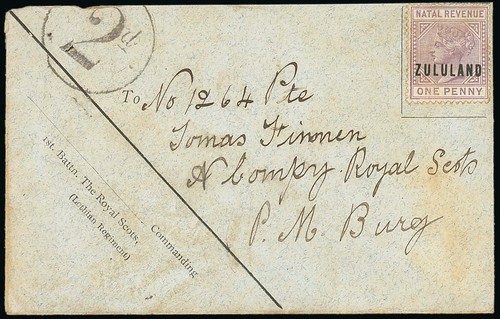 2d
NATAL REVENUE
ZULULAND
ONE PENNY
To No 1264 Pte
Tomas Finnen
A Compy Royal Scots
P. M. Burg
Commanding
1st. Battn. The Royal Scots,
(Lothian Regiment)